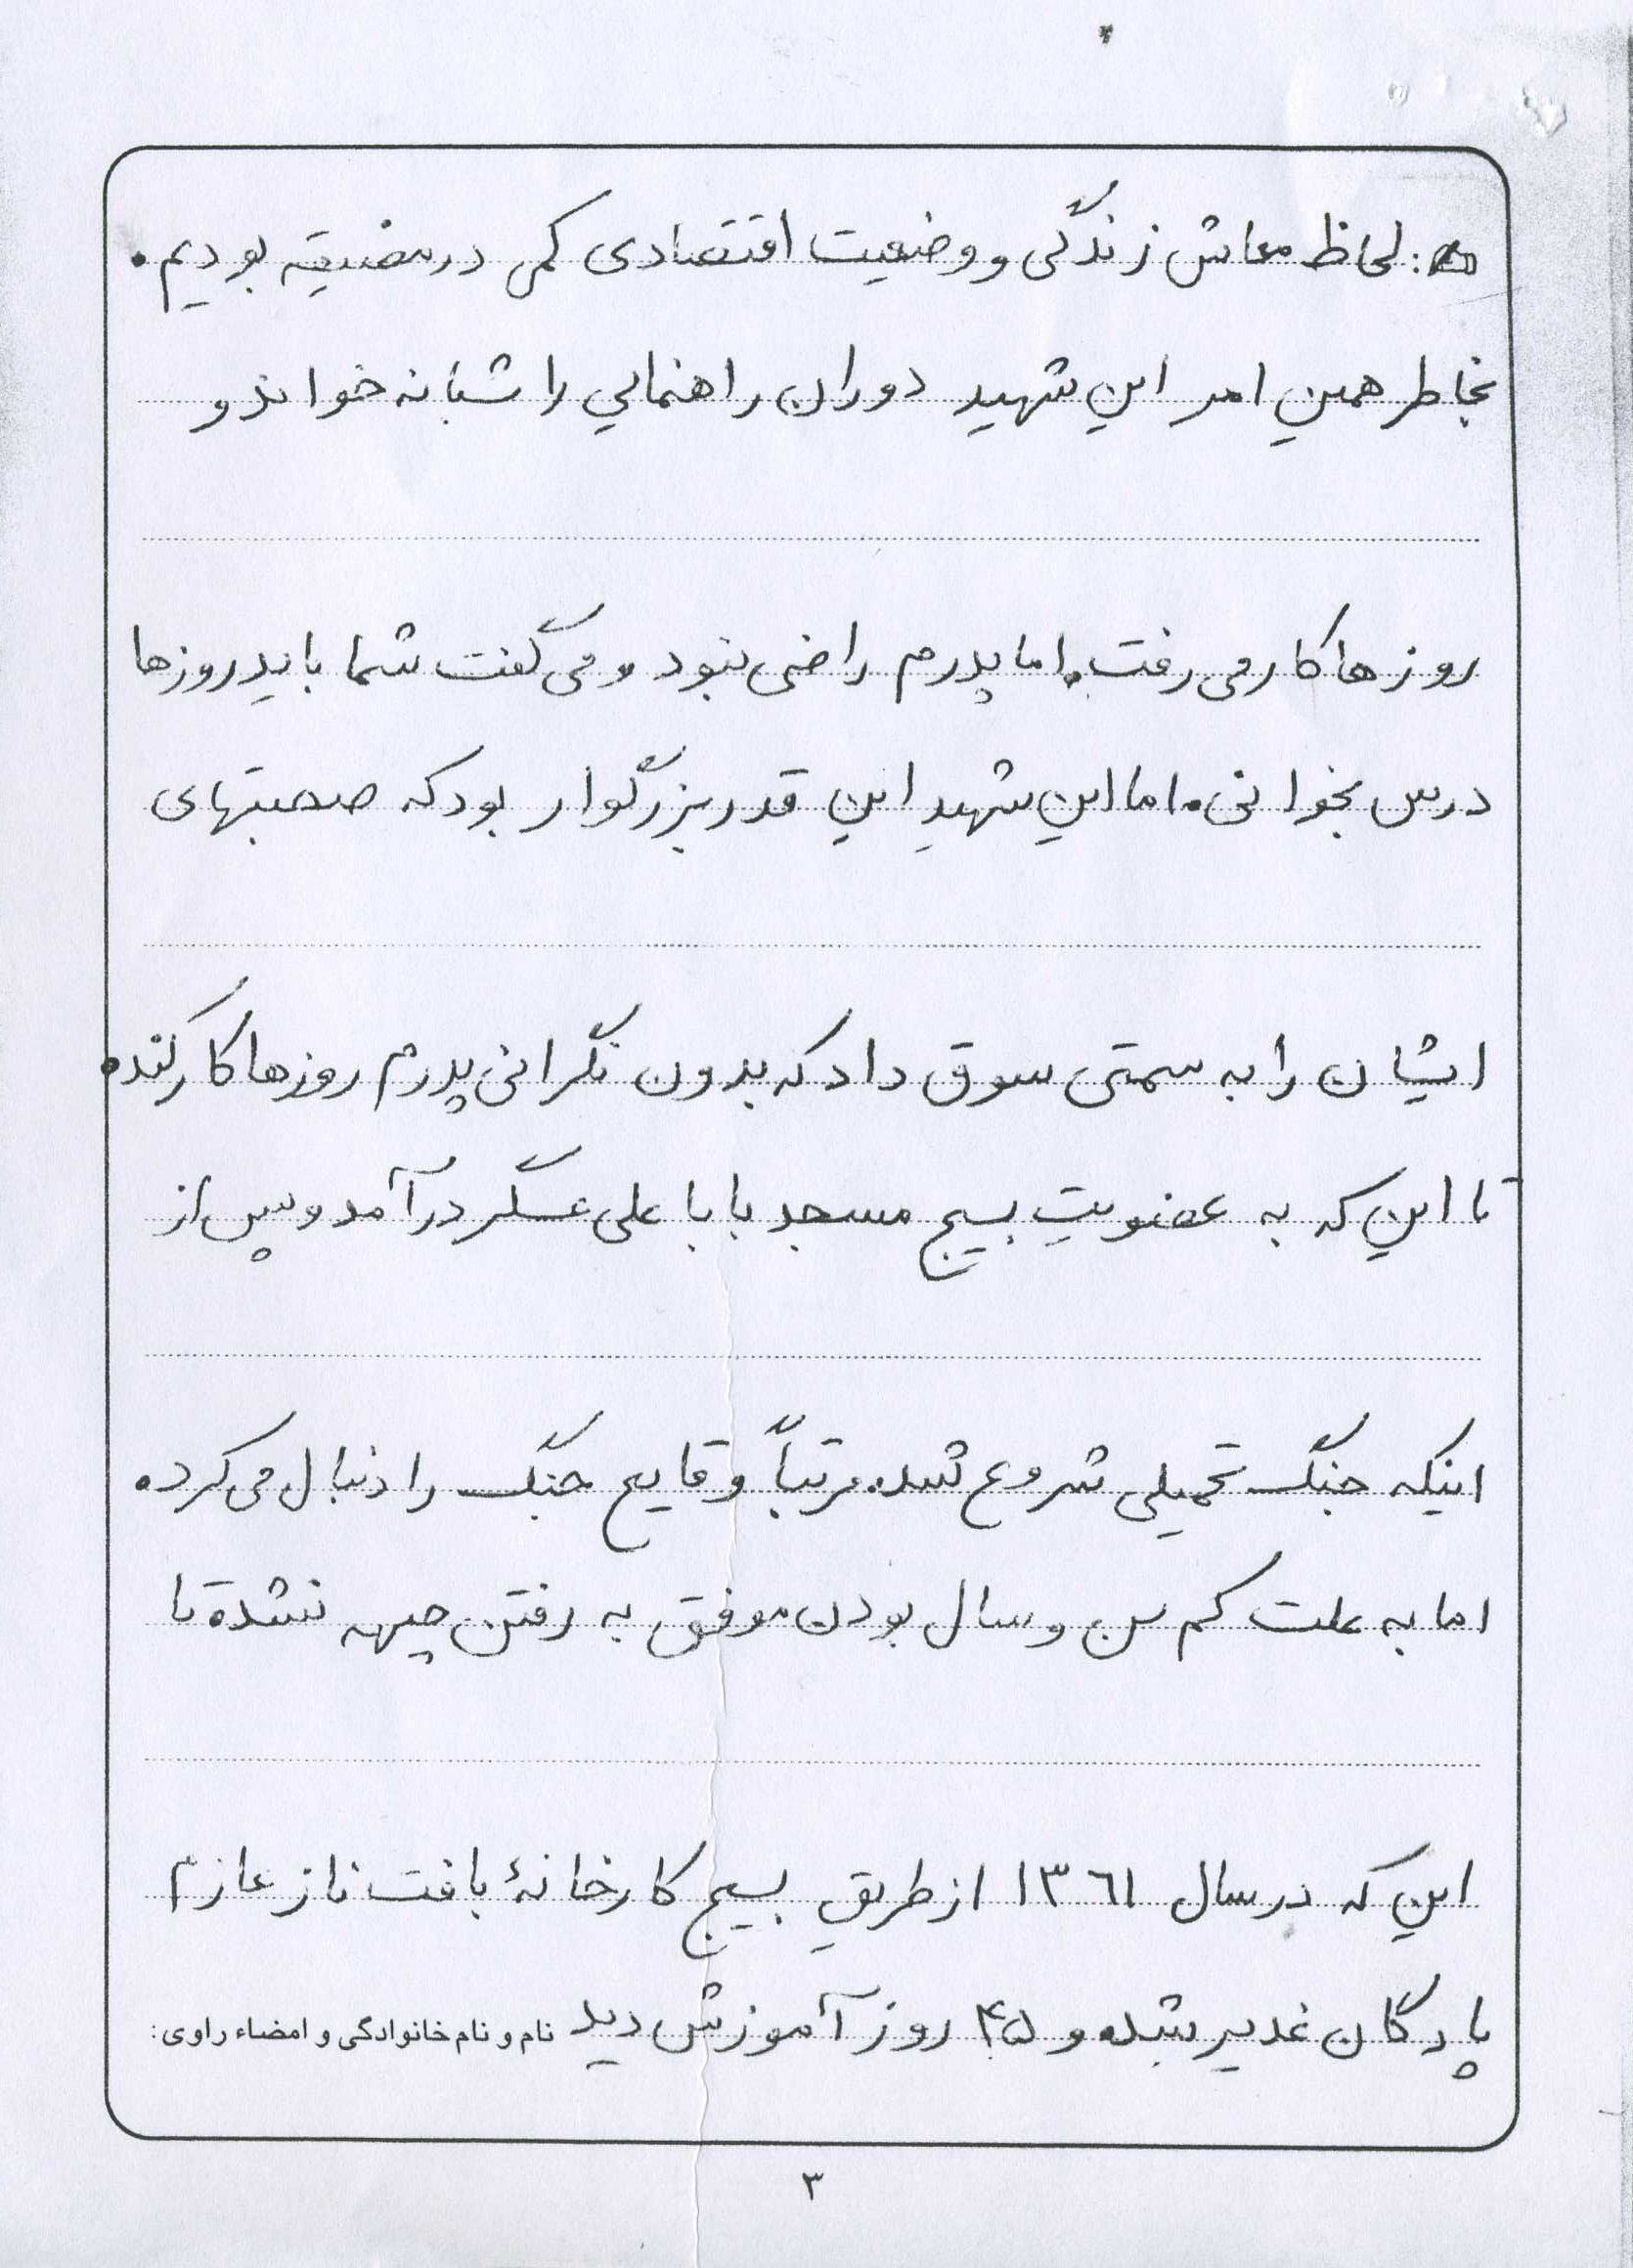 لحاظ معاش زندگی و وضعیت اقتصادی کمی در مضیقه بودیم.
بخاطر همین امر این شهید دوران راهنمایی را شبانه خواند و
روزها کار می رفت. اما پدرم راضی نبود و می گفت شما باید روزها
درس بخوانی. اما این شهید این قدر بزرگوار بود که صحبتهای
ایشان را به سمتی سوق داد که بدون نگرانی پدرم روزها کار کند.
تا این که به عضویت بسیج مسجد بابا علی عسگر درآمد و پس از
اینکه جنگ تحمیلی شروع شد. مرتباً وقایع جنگ را دنبال می کرد.
اما به علت کم سن و سال بودن موفق به رفتن جبهه نشد. تا
این که در سال ۱۳۶۱ از طریق بسیج کارخانهٔ بافت ناز عازم
پادگان غدیر شد. و ۴۵ روز آموزش دید
نام و نام خانوادگی و امضاء راوی:
۳